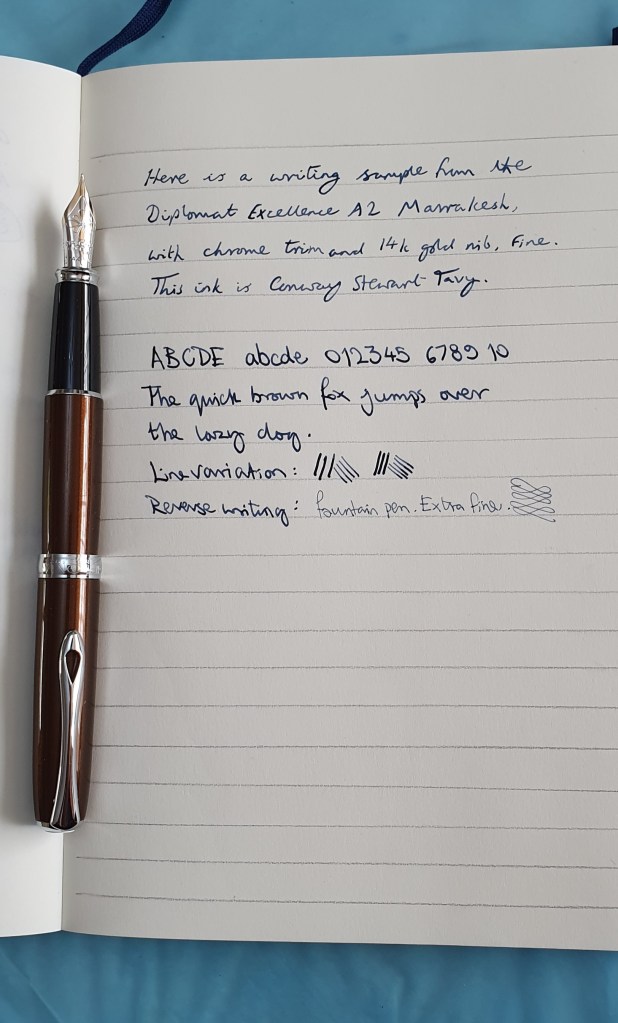 Here is a writing sample from the
Diplomat Excellence A2 Marrakesh,
with chrome trim and 14k gold nib, Fine.
This ink is Conway Stewart Tavy.
ABCDE abcde 012345 6789 10
The quick brown fox jumps over
the lazy dog.
Line variation:
Reverse writing: fountain pen. Extra fine.